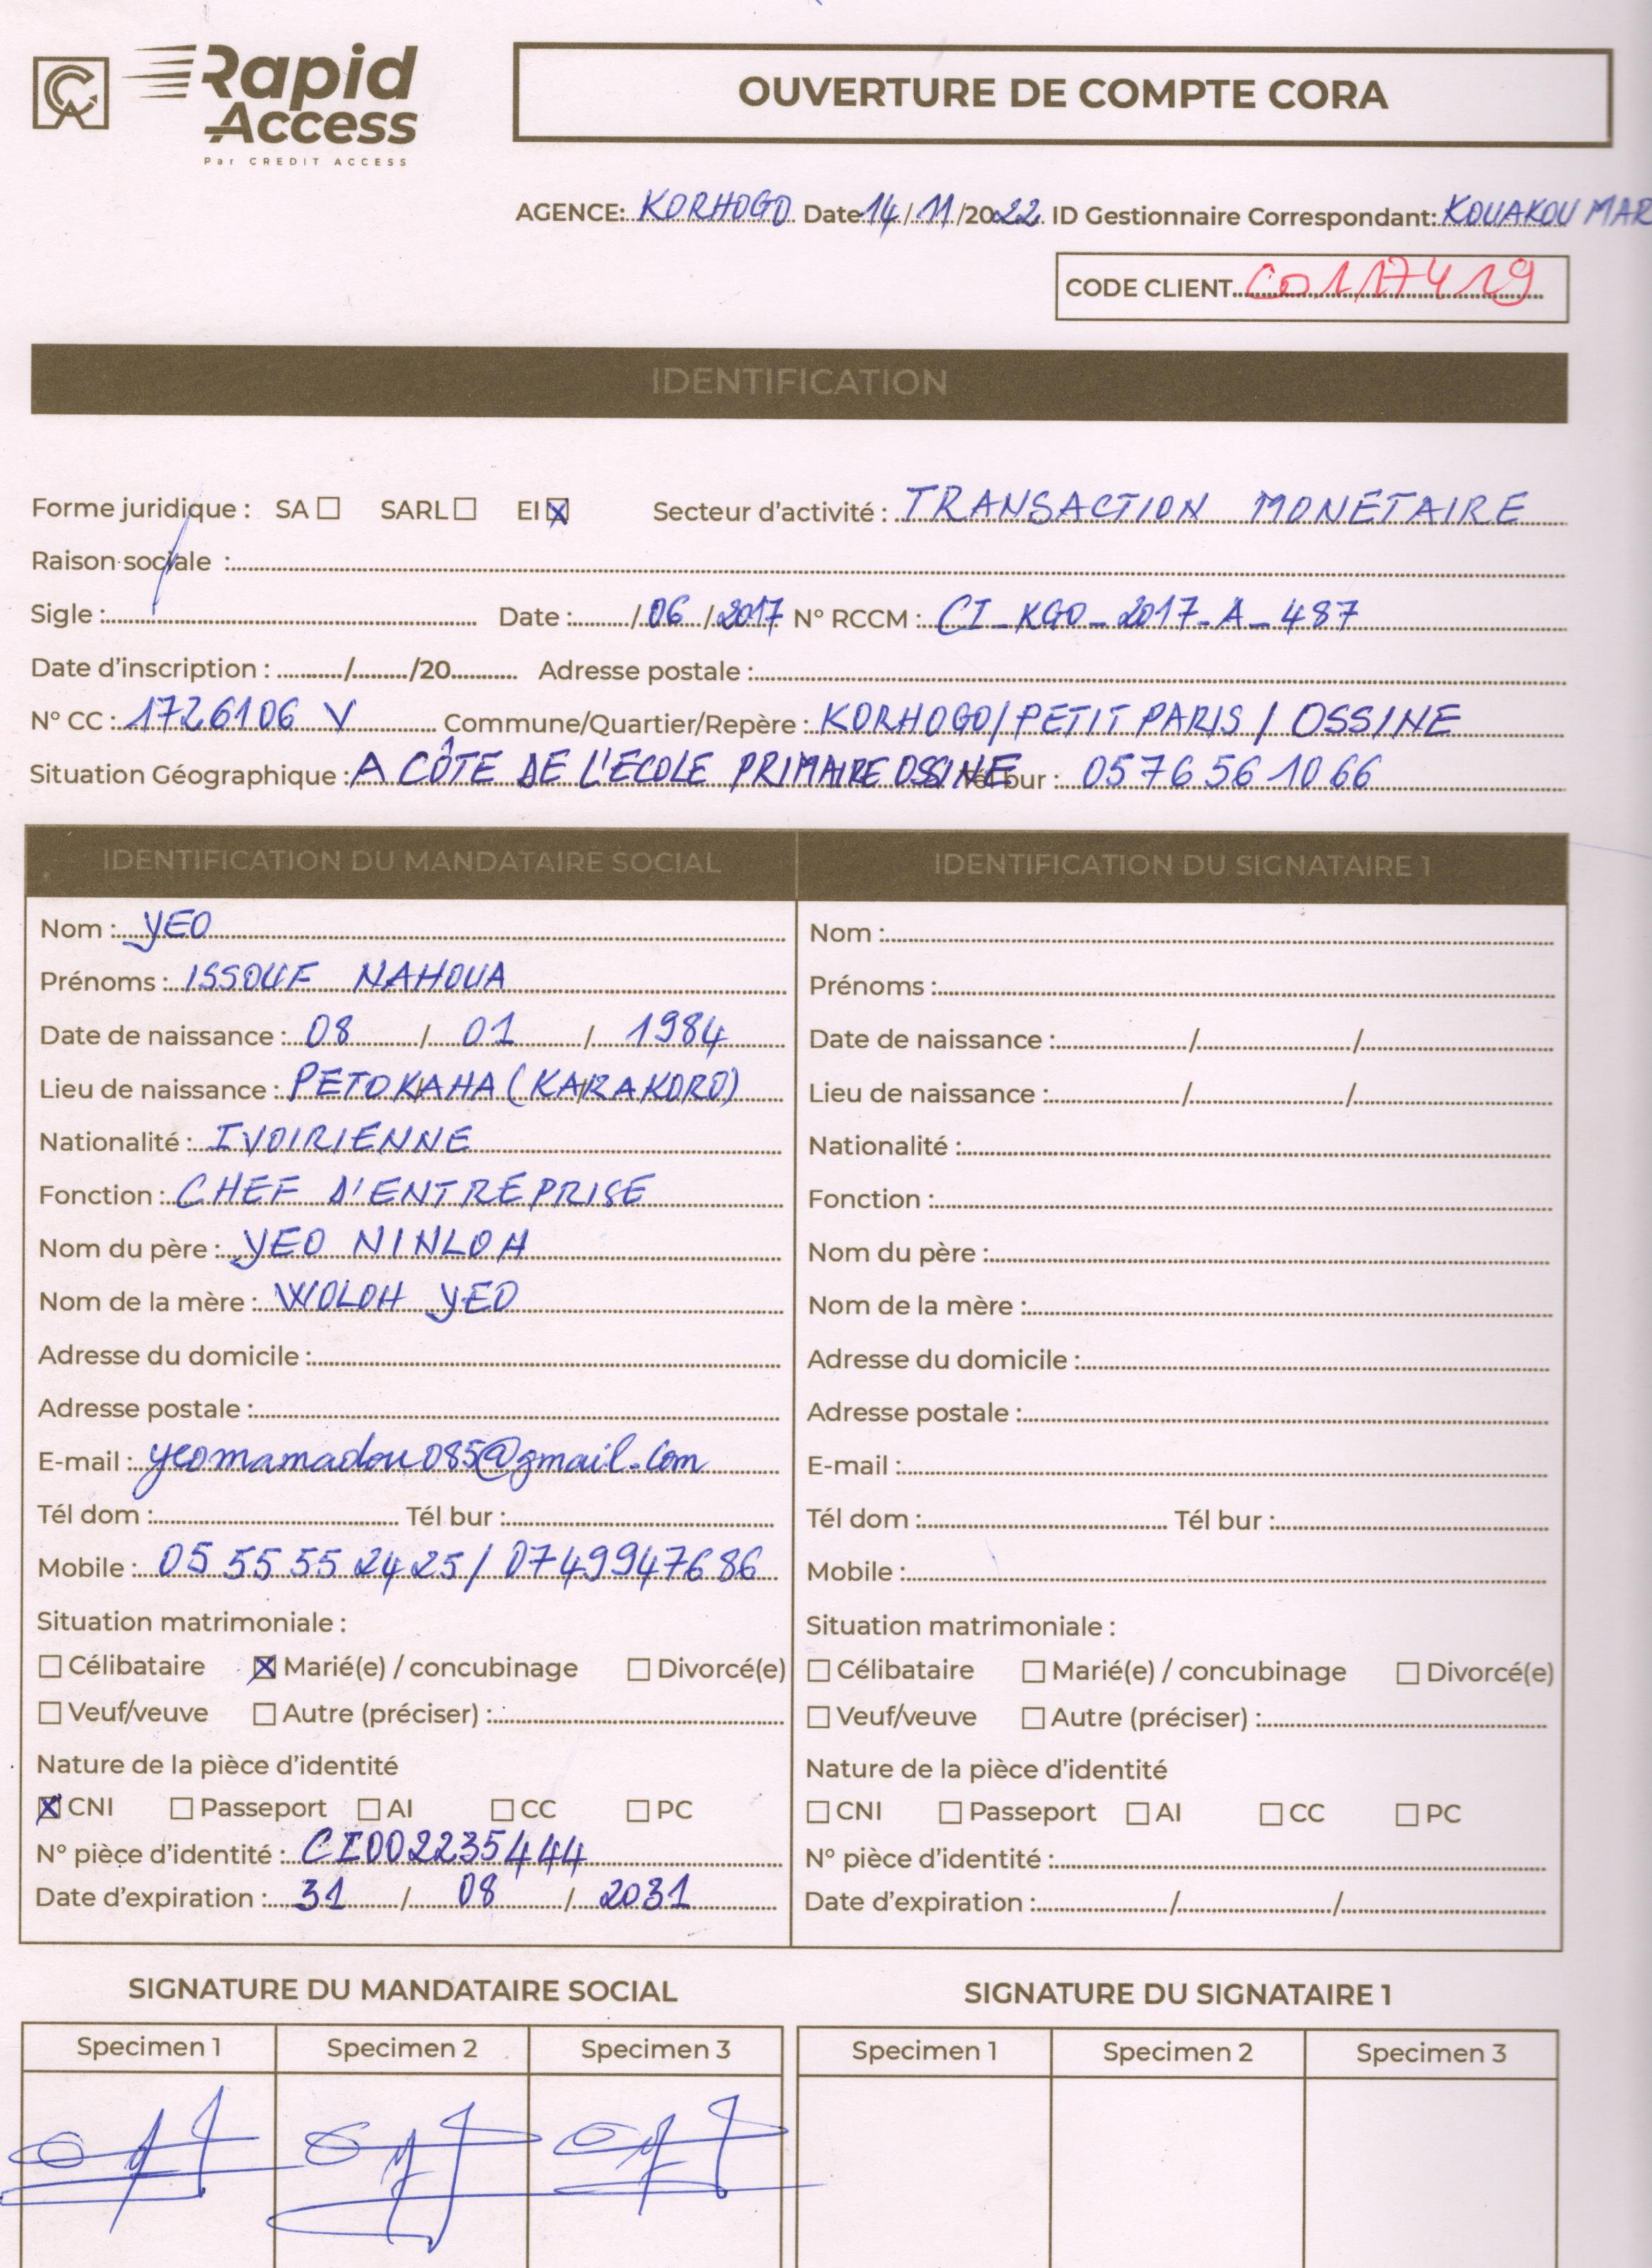 Rapid
Access
Par CREDIT ACCESS
OUVERTURE DE COMPTE CORA
AGENCE: KORHOGO Date 14/11/2022 ID Gestionnaire Correspondant: KOUAKOU MAR
CODE CLIENT C0117419
IDENTIFICATION
Forme juridique : SA ☐ SARL ☐ EI ☒ Secteur d'activité : TRANSACTION MONETAIRE
Raison sociale :
Sigle : Date : /06/2017 N° RCCM : CI_KGO_2017-A_487
Date d'inscription : / /20 Adresse postale :
N° CC : 1726106 V Commune/Quartier/Repère : KORHOGO/PETIT PARIS / OSSINE
Situation Géographique : A CÔTE DE L'ECOLE PRIMAIRE OSSINE Tél bur : 0576561066
IDENTIFICATION DU MANDATAIRE SOCIAL
Nom : YEO
Prénoms : ISSOUF NAHOUA
Date de naissance : 08 / 01 / 1984
Lieu de naissance : PETOKAHA (KARAKORO)
Nationalité : IVOIRIENNE
Fonction : CHEF D'ENTREPRISE
Nom du père : YEO NINLOH
Nom de la mère : WOLOH YEO
Adresse du domicile :
Adresse postale :
E-mail : yeomamadou085@gmail.com
Tél dom : Tél bur :
Mobile : 05 55 55 24 25 / 0749947686
Situation matrimoniale :
☐ Célibataire ☒ Marié(e) / concubinage ☐ Divorcé(e)
☐ Veuf/veuve ☐ Autre (préciser) :
Nature de la pièce d'identité
☒ CNI ☐ Passeport ☐ AI ☐ CC ☐ PC
N° pièce d'identité : CI002235444
Date d'expiration : 31 / 08 / 2031
IDENTIFICATION DU SIGNATAIRE 1
Nom :
Prénoms :
Date de naissance : / /
Lieu de naissance : / /
Nationalité :
Fonction :
Nom du père :
Nom de la mère :
Adresse du domicile :
Adresse postale :
E-mail :
Tél dom : Tél bur :
Mobile :
Situation matrimoniale :
☐ Célibataire ☐ Marié(e) / concubinage ☐ Divorcé(e)
☐ Veuf/veuve ☐ Autre (préciser) :
Nature de la pièce d'identité
☐ CNI ☐ Passeport ☐ AI ☐ CC ☐ PC
N° pièce d'identité :
Date d'expiration : / /
SIGNATURE DU MANDATAIRE SOCIAL
Specimen 1 Specimen 2 Specimen 3
SIGNATURE DU SIGNATAIRE 1
Specimen 1 Specimen 2 Specimen 3